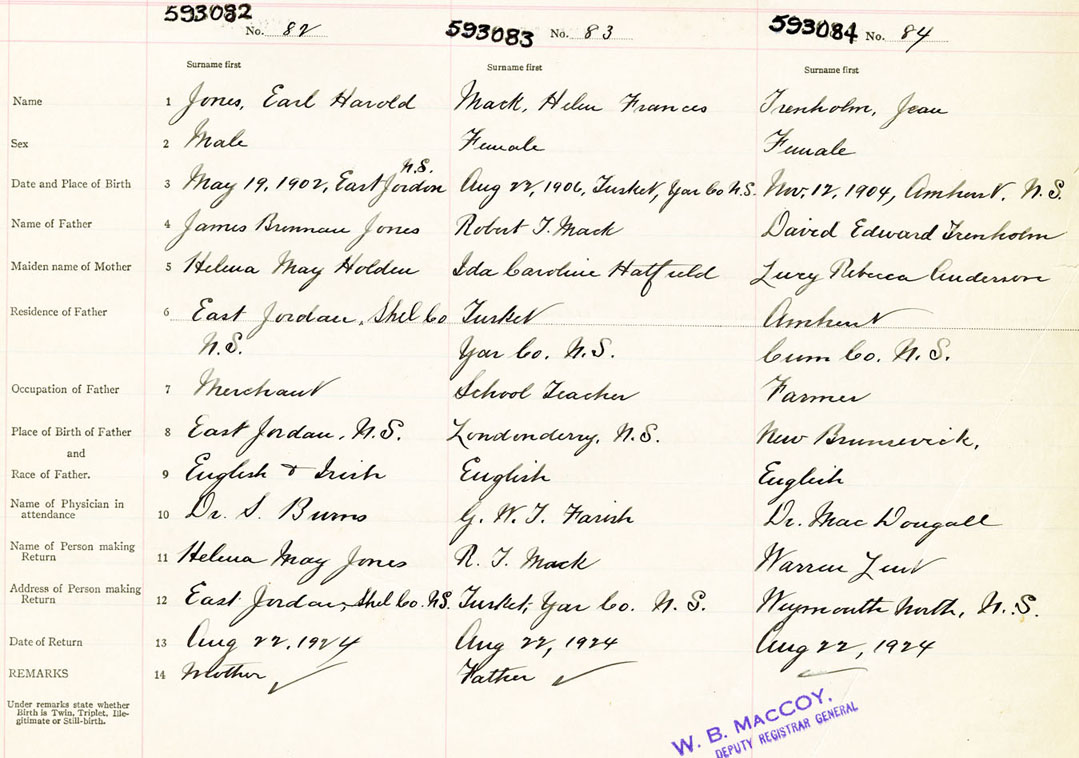 593082 No. 82 593083 No. 83 593084 No. 84
Surname first Surname first Surname first
Name 1 Jones, Earl Harold Mack, Helen Frances Trenholm, Jean
Sex 2 Male Female Female
N.S.
Date and Place of Birth 3 May 19, 1902, East Jordon Aug 22, 1906, Tusket, Yar Co N.S. Nov. 12, 1904, Amherst, N.S.
Name of Father 4 James Brennan Jones Robert T. Mack David Edward Trenholm
Maiden name of Mother 5 Helena May Holden Ida Caroline Hatfield Lucy Rebecca Anderson
Residence of Father 6 East Jordan, Shel Co Tusket Amherst
N.S. Yar Co. N.S. Cum Co. N.S.
Occupation of Father 7 Merchant School Teacher Farmer
Place of Birth of Father 8 East Jordan, N.S. Londonderry, N.S. New Brunswick,
and
Race of Father. 9 English & Irish English English
Name of Physician in
attendance 10 Dr. S. Burns G. W. T. Farish Dr. Mac Dougall
Name of Person making
Return 11 Helena May Jones R. T. Mack Warren
Address of Person making
Return 12 East Jordan, Shel Co. N.S. Tusket, Yar Co. N.S. Weymouth North, N.S.
Date of Return 13 Aug 22, 1924 Aug 22, 1924 Aug 22, 1924
REMARKS 14 Mother Father
Under remarks state whether
Birth is Twin, Triplet, Ille-
gitimate or Still-birth.
W. B. MACCOY.
DEPUTY REGISTRAR GENERAL